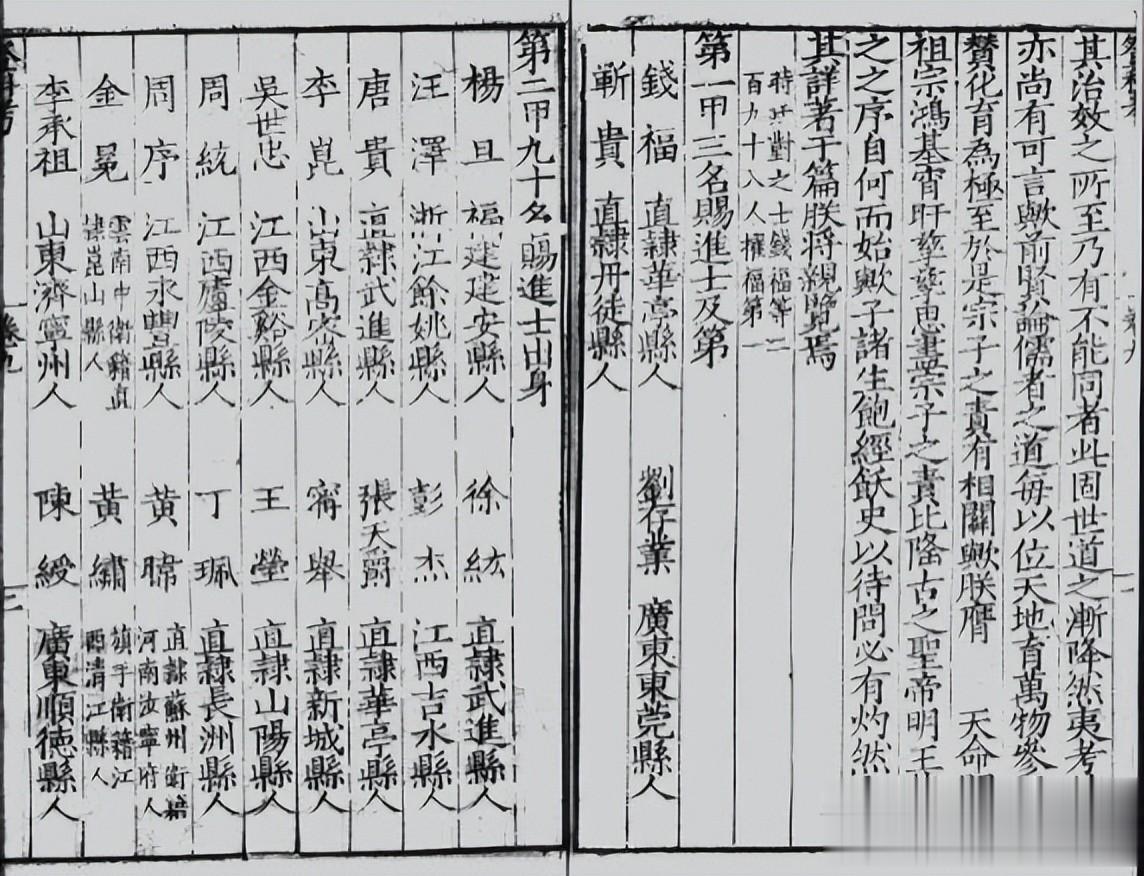 其治效之所至乃有不能同者此固世道之漸降然夷考
亦尚有可言歟前賢論儒者之道每以位天地育萬物參
賛化育為極至於是宗子之責有相關歟朕膺 天命
祖宗鴻基宵旰孳孳思盡宗子之責比隆古之聖帝明王
之之序自何而始歟子諸生飽經飫史以待問必有灼然
其詳著于篇朕將親覽焉
時廷對之士錢福等二
百九十八人擢福第一
第一甲三名賜進士及第
錢福 直隸華亭縣人 劉存業 廣東東莞縣人
靳貴 直隸丹徒縣人
第二甲九十名賜進士出身
楊旦 福建建安縣人 徐紘 直隸武進縣人
汪澤 浙江餘姚縣人 彭杰 江西吉水縣人
唐貴 直隸武進縣人 張天爵 直隸華亭縣人
李崑 山東高密縣人 甯舉 直隸新城縣人
吳世忠 江西金谿縣人 王瑩 直隸山陽縣人
周統 江西廬陵縣人 丁珮 直隸長洲縣人
周序 江西永豐縣人 黃暐 直隸蘇州衛籍河南汝寧府人
金冕 雲南中衛籍直隸崑山縣人 黃繡 旗手衛籍江西清江縣人
李承祖 山東濟寧州人 陳綬 廣東順德縣人
卷九